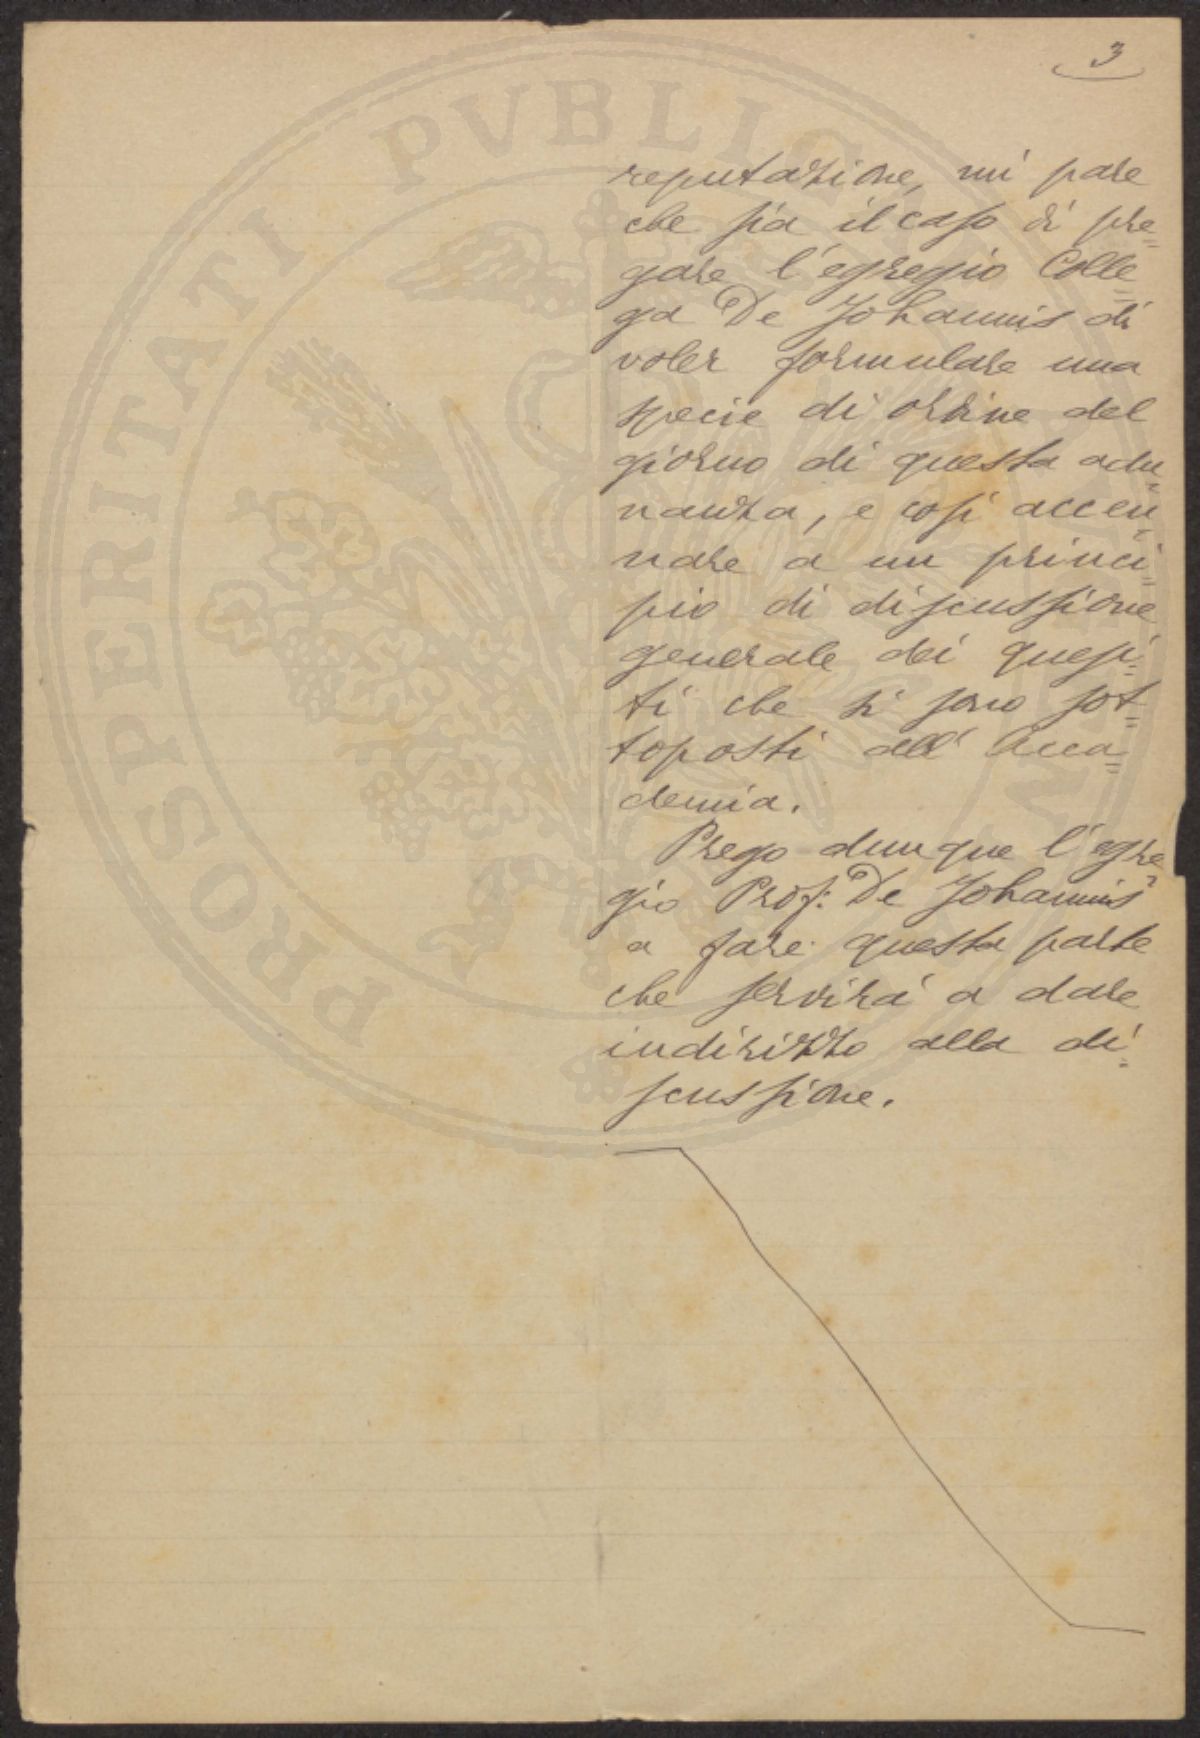 3
reputazione, mi pare
che sia il caso di pre=
gare l'egregio Colle=
ga De Johannis di
voler formulare una
specie di ordine del
giorno di questa adu=
nanza, e così accen=
nare a un princi=
pio di discussione
generale dei quesi=
ti che si sono sot=
toposti all'Acca=
demia.
Prego dunque l'egre=
gio Prof: De Johannis
a fare questa parte
che servirà a dare
indirizzo alla di=
scussione.
PROSPERITATI PVBLICAE